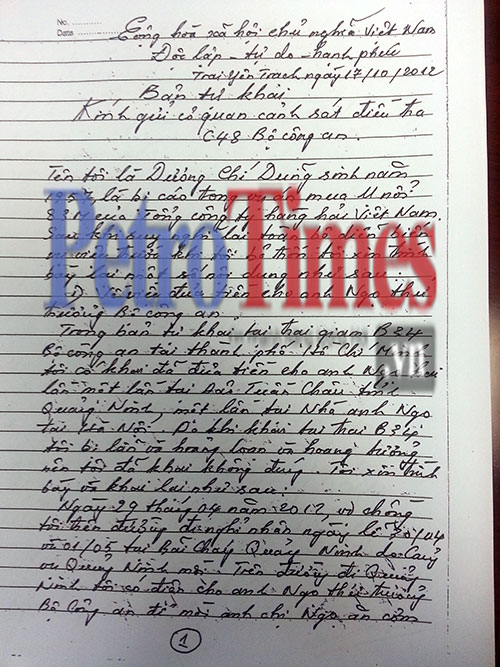 No.
Date
Cộng hoà xã hội chủ nghĩa Việt Nam
Độc lập - tự do - hạnh phúc
Trại Yên Trạch ngày 17/10/2012
Bản tự khai
Kính gửi cơ quan cảnh sát điều tra
C48 Bộ công an.
Tên tôi là Dương Chí Dũng sinh năm
1957 là bị cáo trong vụ án mua Ụ nổi
83M của Tổng công ty hàng hải Việt Nam.
Sau khi lại toàn bộ diễn biến
khi tôi bỏ trốn tôi xin trình
bày lại một số nội dung như sau.
1) đưa tiền cho anh Ngọ thứ
trưởng Bộ công an
Trong bản tự khai tại trại giam B34
Bộ công an tại thành phố Hồ Chí Minh
tôi có khai đã đưa tiền cho anh Ngọ hai
lần một lần tại Đảo Tuần Châu tỉnh
Quảng Ninh, một lần tại Nhà anh Ngọ
tại Hà Nội. Do khi khai tại trại B34
tôi bị lẫn và hoảng loạn và hoang tưởng
nên tôi đã khai không đúng. Tôi xin trình
bày và khai lại như sau.
Ngày 29 tháng 04 năm 2012, vợ chồng
tôi trên đường đi nghỉ nhân ngày lễ 30/04
và 01/05 tại Bãi Cháy Quảng Ninh do
vụ Quảng Ninh mời. Trên đường đi Quảng
Ninh tôi có điện cho anh Ngọ thứ trưởng
Bộ Công an để mời anh chị Ngọ ăn cơm
1
PetroTimes
.vn